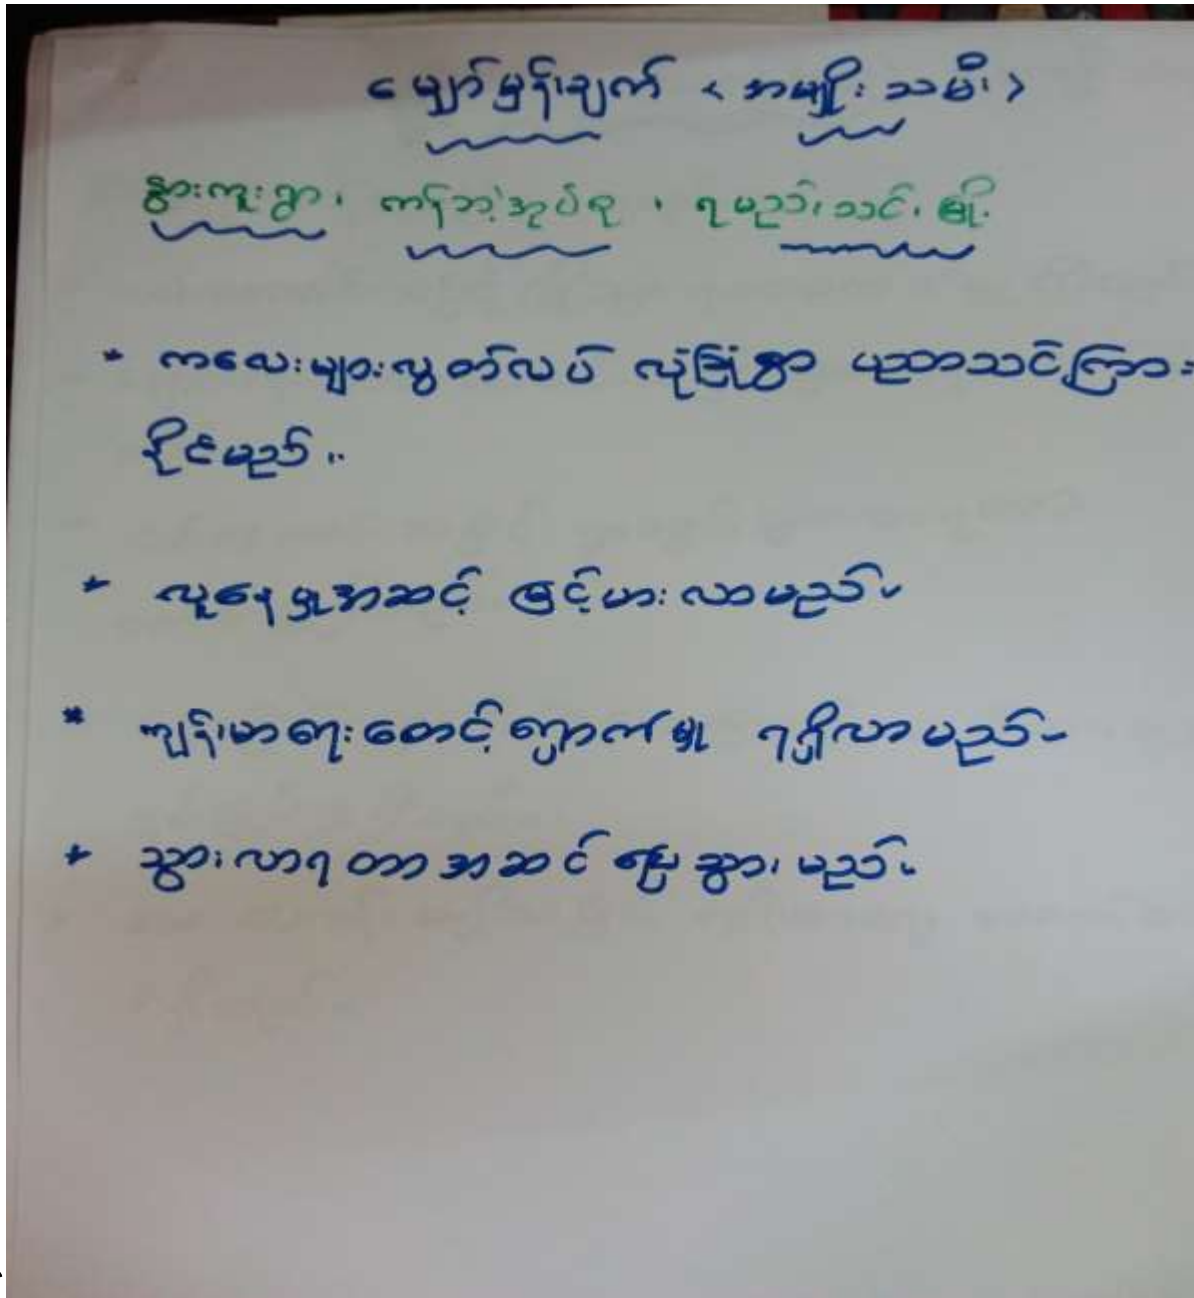 မျှော်မှန်းချက် < အမျိုးသမီး >
နွားကူးရွာ၊ ကန်ဘဲ့အုပ်စု ၊ ရမည်းသင်းမြို့
* ကလေးများလွတ်လပ် လုံခြုံစွာ ပညာသင်ကြား
နိုင်မည်။
* လူနေမှုအဆင့် မြင့်မားလာမည်။
* ကျန်းမာရေးစောင့်ရှောက်မှု ရရှိလာမည်။
* သွားလာရတာအဆင်ပြေသွားမည်။